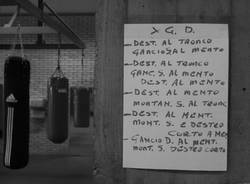 > G. D.
— DEST. AL TRONCO
GANCIO S AL MENTO
— DEST. AL TRONCO
GANC. S. AL MENTO
DEST. AL MENTO
— DEST. AL MENTO
MONTAN. S. AL TRONC
— DEST. AL MENT.
MONT. S. E DESTRO
CORTO A MEN
— GANCIO D. AL MENT.
MONT. S. DESTRO CORTO
adidas